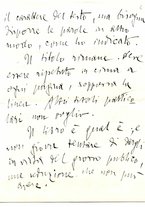 il carattere del testo, ma bisogna
disporre le parole in altro
modo, come ho indicato.
Il titolo rimane. Deve
essere ripetuto in cima a
ogni pagina, seppure in
linea. Altri titoli partico
lari non voglio.
Il libro è qual è, e
non giova tentare di dargli
in vista del grosso pubblico,
una attrazione che non può
avere.